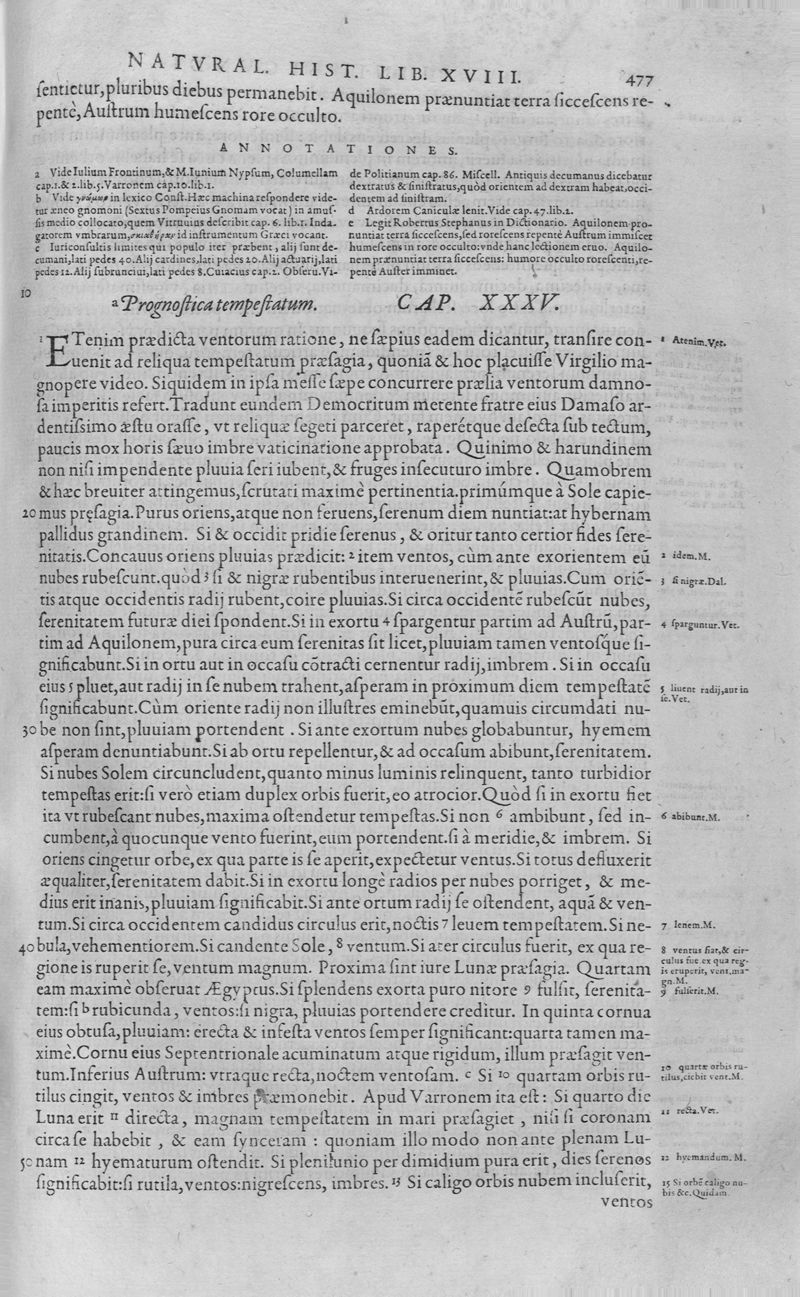 NATVRAL. HIST. LIB. XVIII. 477
ſentietur, pluribus diebus permanebit. Aquilonem prænuntiat terra ſicceſcens re-
pentè, Auſtrum humeſcens rore occulto.
ANNOTATIONES.
a Vide Iulium Frontinum, & M. Iunium Nypſum, Columellam
cap.1.& 2.lib.5. Varronem cap.10.lib.1.
b Vide γνώμων in lexico Conſt. Hæc machina reſpondere vide-
tur æneo gnomoni (Sextus Pompeius Gnomam vocat) in amuſ-
ſis medio collocato, quem Vitruuius deſcribit cap. 6. lib.1. Inda-
gatorem vmbrarum, id inſtrumentum Græci vocant.
c Iuriconſultis limites qui populo iter præbent, alij ſunt de-
cumani, lati pedes 40. Alij cardines, lati pedes 20. Alij actuarij, lati
pedes 12. Alij ſubrunciui, lati pedes 8. Cuiacius cap.2. Obſeru. Vi-
de Politianum cap. 86. Miſcell. Antiquis decumanus dicebatur
dextratus & ſiniſtratus, quòd orientem ad dextram habeat, occi-
dentem ad ſiniſtram.
d Ardorem Caniculæ lenit. Vide cap. 47. lib.2.
e Legit Robertus Stephanus in Dictionario. Aquilonem pro-
nuntiat terra ſicceſcens, ſed roreſcens repentè Auſtrum immiſcet
humeſcens in rore occulto: vnde hanc lectionem eruo. Aquilo-
nem prænuntiat terra ſicceſcens: humore occulto roreſcenti, re-
pentè Auſter imminet.
10
a Prognoſtica tempeſtatum. CAP. XXXV.
1 ETenim prædicta ventorum ratione, ne ſæpius eadem dicantur, tranſire con-
uenit ad reliqua tempeſtatum præſagia, quoniā & hoc placuiſſe Virgilio ma-
gnopere video. Siquidem in ipſa meſſe ſæpe concurrere prælia ventorum damno-
ſa imperitis refert. Tradunt eundem Democritum metente fratre eius Damaſo ar-
dentiſsimo æſtu oraſſe, vt reliquæ ſegeti parceret, raperétque deſecta ſub tectum,
paucis mox horis ſæuo imbre vaticinatione approbata. Quinimo & harundinem
non niſi impendente pluuia ſeri iubent, & fruges inſecuturo imbre. Quamobrem
& hæc breuiter attingemus, ſcrutati maximè pertinentia. primúmque à Sole capie-
20 mus pręſagia. Purus oriens, atque non feruens, ſerenum diem nuntiat: at hybernam
pallidus grandinem. Si & occidit pridie ſerenus, & oritur tanto certior fides ſere-
nitatis. Concauus oriens pluuias prædicit: 2 item ventos, cùm ante exorientem eū
nubes rubeſcunt. quòd 3 ſi & nigræ rubentibus interuenerint, & pluuias. Cum oriē-
tis atque occidentis radij rubent, coire pluuias. Si circa occidentē rubeſcūt nubes,
ſerenitatem futuræ diei ſpondent. Si in exortu 4 ſpargentur partim ad Auſtrū, par-
tim ad Aquilonem, pura circa eum ſerenitas ſit licet, pluuiam tamen ventoſque ſi-
gnificabunt. Si in ortu aut in occaſu cōtracti cernentur radij, imbrem. Si in occaſu
eius 5 pluet, aut radij in ſe nubem trahent, aſperam in proximum diem tempeſtatē
ſignificabunt. Cùm oriente radij non illuſtres eminebūt, quamuis circumdati nu-
30 be non ſint, pluuiam portendent. Si ante exortum nubes globabuntur, hyemem
aſperam denuntiabunt. Si ab ortu repellentur, & ad occaſum abibunt, ſerenitatem.
Si nubes Solem circuncludent, quanto minus luminis relinquent, tanto turbidior
tempeſtas erit: ſi verò etiam duplex orbis fuerit, eo atrocior. Quòd ſi in exortu fiet
ita vt rubeſcant nubes, maxima oſtendetur tempeſtas. Si non 6 ambibunt, ſed in-
cumbent, à quocunque vento fuerint, eum portendent. ſi à meridie, & imbrem. Si
oriens cingetur orbe, ex qua parte is ſe aperit, expectetur ventus. Si totus defluxerit
æqualiter, ſerenitatem dabit. Si in exortu longè radios per nubes porriget, & me-
dius erit inanis, pluuiam ſignificabit. Si ante ortum radij ſe oſtendent, aquā & ven-
tum. Si circa occidentem candidus circulus erit, noctis 7 leuem tempeſtatem. Si ne-
40 bula, vehementiorem. Si candente Sole, 8 ventum. Si ater circulus fuerit, ex qua re-
gione is ruperit ſe, ventum magnum. Proxima ſint iure Lunæ præſagia. Quartam
eam maximè obſeruat Ægyptus. Si ſplendens exorta puro nitore 9 fulſit, ſerenita-
tem: ſi b rubicunda, ventos: ſi nigra, pluuias portendere creditur. In quinta cornua
eius obtuſa, pluuiam: erecta & infeſta ventos ſemper ſignificant: quarta tamen ma-
ximè. Cornu eius Septentrionale acuminatum atque rigidum, illum præſagit ven-
tum. Inferius Auſtrum: vtraque recta, noctem ventoſam. c Si 10 quartam orbis ru-
tilus cingit, ventos & imbres præmonebit. Apud Varronem ita eſt: Si quarto die
Luna erit 11 directa, magnam tempeſtatem in mari præſagiet, niſi ſi coronam
circa ſe habebit, & eam ſynceram: quoniam illo modo non ante plenam Lu-
50 nam 12 hyematurum oſtendit. Si plenilunio per dimidium pura erit, dies ſerenos
ſignificabit: ſi rutila, ventos: nigreſcens, imbres. 13 Si caligo orbis nubem incluſerit,
ventos
1 Atenim. Vet.
2 idem. M.
3 ſi nigræ. Dal.
4 ſparguntur. Vet.
5 liuent radij, aut in
ſe. Vet.
6 abibunt. M.
7 lenem. M.
8 ventus fiat, & cir-
culus fue. ex qua reg-
is eruperit, vent. ma-
gn. M.
9 fulſerit. M.
10 quartæ orbis ru-
tilus, ciebit vent. M.
11 recta. Vet.
12 hyemandum. M.
13 Si orbē caligo nu-
bis &c. Quidam.